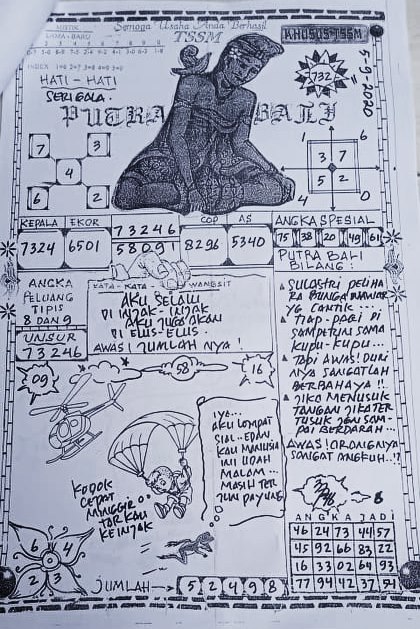 Semoga Usaha Anda Berhasil
TSSM
KHUSUS TSSM
MISTIK
LAMA - BARU
INDEX
5-9-2020
732
HATI - HATI
SERIGALA.
PUTRA BALI
7 3
4
6 2
1 6
3 7
5 2
4 0
KEPALA EKOR
7324 6501
73246
58091
COP AS
8296 5340
ANGKA SPESIAL
75 38 20 49 61
PUTRA BALI
BILANG :
ANGKA
PELUANG
TIPIS
8 DAN 9
UNSUR
73246
KATA - KATA WANGSIT
AKU SELALU
DI INJAK - INJAK
AKU JUGA AKAN
DI ELUS - ELUS.
AWAS ! JUMLAH NYA !
SULASTRI PELIHA
RA BUNGA MAWAR
YG CANTIK ...
TIAP - PAGI DI
SAMPERIN SAMA
KUPU - KUPU...
TAPI AWAS! DURI
NYA SANGATLAH
BERBAHAYA !!
JIKA MENUSUK
TANGAN JIKA TER
TUSUK JGN SAM-
PAI BERDARAH ..
AWAS! ORANGNYA
SANGAT ANGKUH..!?
09
58
16
IYA...
AKU LOMPAT
SIAL.. EDAN
KAU MANUSIA
INI UDAH
MALAM...
MASIH TER
JUN PAYUNG
KODOK
CEPAT
MINGGIR
TAR KAU
KEINJAK
6 4
2 3
JUMLAH 5 2 4 9 8
ANGKA JADI
46 24 73 44 57
45 92 66 83 22
16 33 02 64 93
77 94 42 37 54